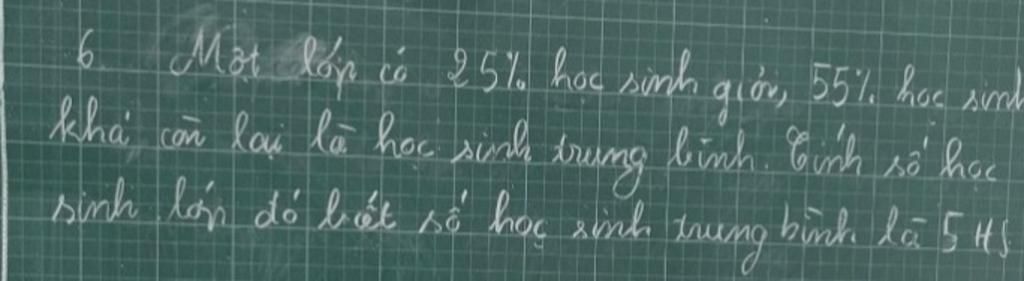 6. Một lớp có 25% học sinh giỏi, 55% học sinh
khá, còn lại là học sinh trung bình. Tính số học
sinh lớp đó biết số học sinh trung bình là 5 HS